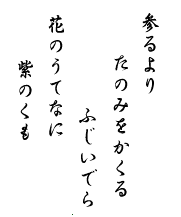 参るより
たのみをかくる
ふじいでら
花のうてなに
紫のくも